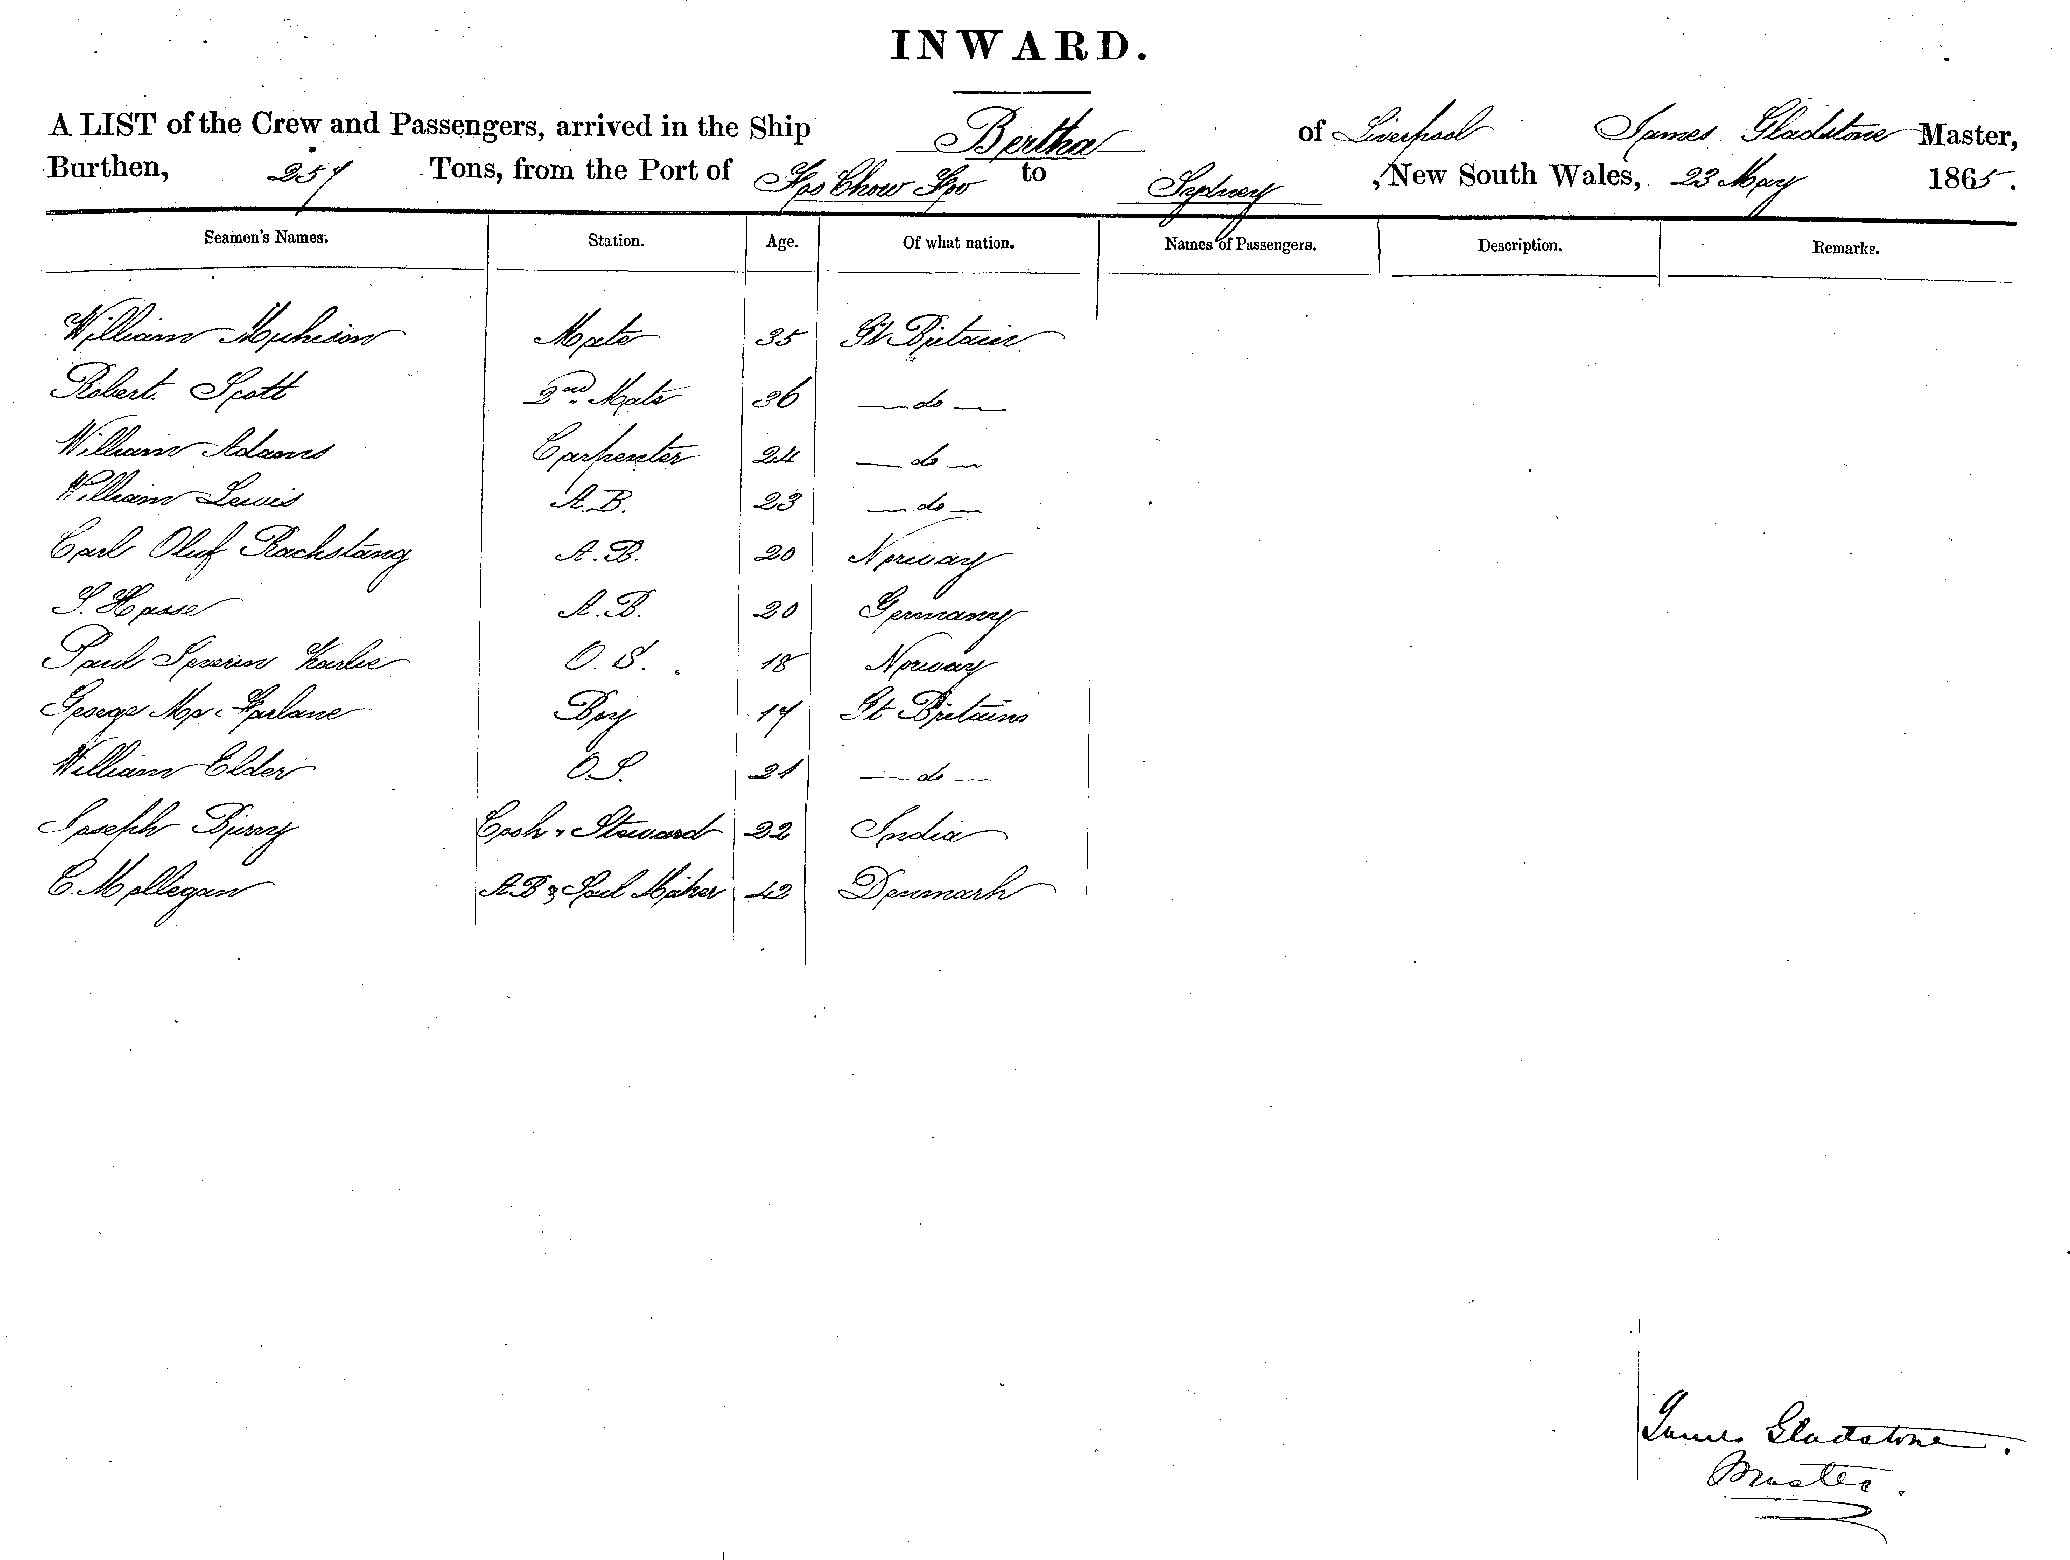 INWARD.
A LIST of the Crew and Passengers, arrived in the Ship Bertha of Liverpool James Gladstone Master,
Burthen, 257 Tons, from the Port of Foo Chow Foo to Sydney, New South Wales, 23 May 1865.
Seamen's Names. Station. Age. Of what nation. Names of Passengers. Description. Remarks.
William Mate 35 Gt Britain
Robert Scott 2nd Mate 36 — do —
William Adams Carpenter 24 — do —
William Lewis A.B. 23 — do —
Carl Oluf Rachstang A.B. 20 Norway
S. Hasse A.B. 20 Germany
Paul Severin O.S. 18 Norway
George Mac Farlane Boy 17 Gt Britain
William Elder O.S. 21 — do —
Joseph Cook & Steward 22 India
C. Mollegan A.B & Sail Maker 42 Denmark
James Gladstone.
Master.